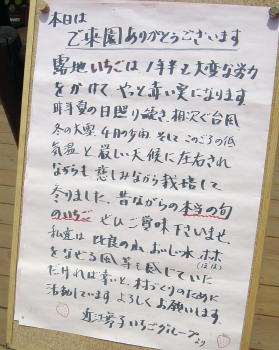 本日は
ご来園ありがとうございます
露地いちごは1年半と大変な労力
をかけて やっと赤い実になります
昨年夏の日照り続き、相次ぐ台風
冬の大雪、4月の多雨、そしてこのごろの低
気温と厳しい天候に左右され
ながらも 悲しみながら栽培して
参りました。昔ながらの本当の旬
のいちご ぜひご賞味下さいませ。
私達は 比良の山、おいしい水、林
をなぜる風等を感じていた
(ほほ)
だければ幸いと、村づくりのために
活動しています よろしくお願います。
近江舞子いちごグループ
より